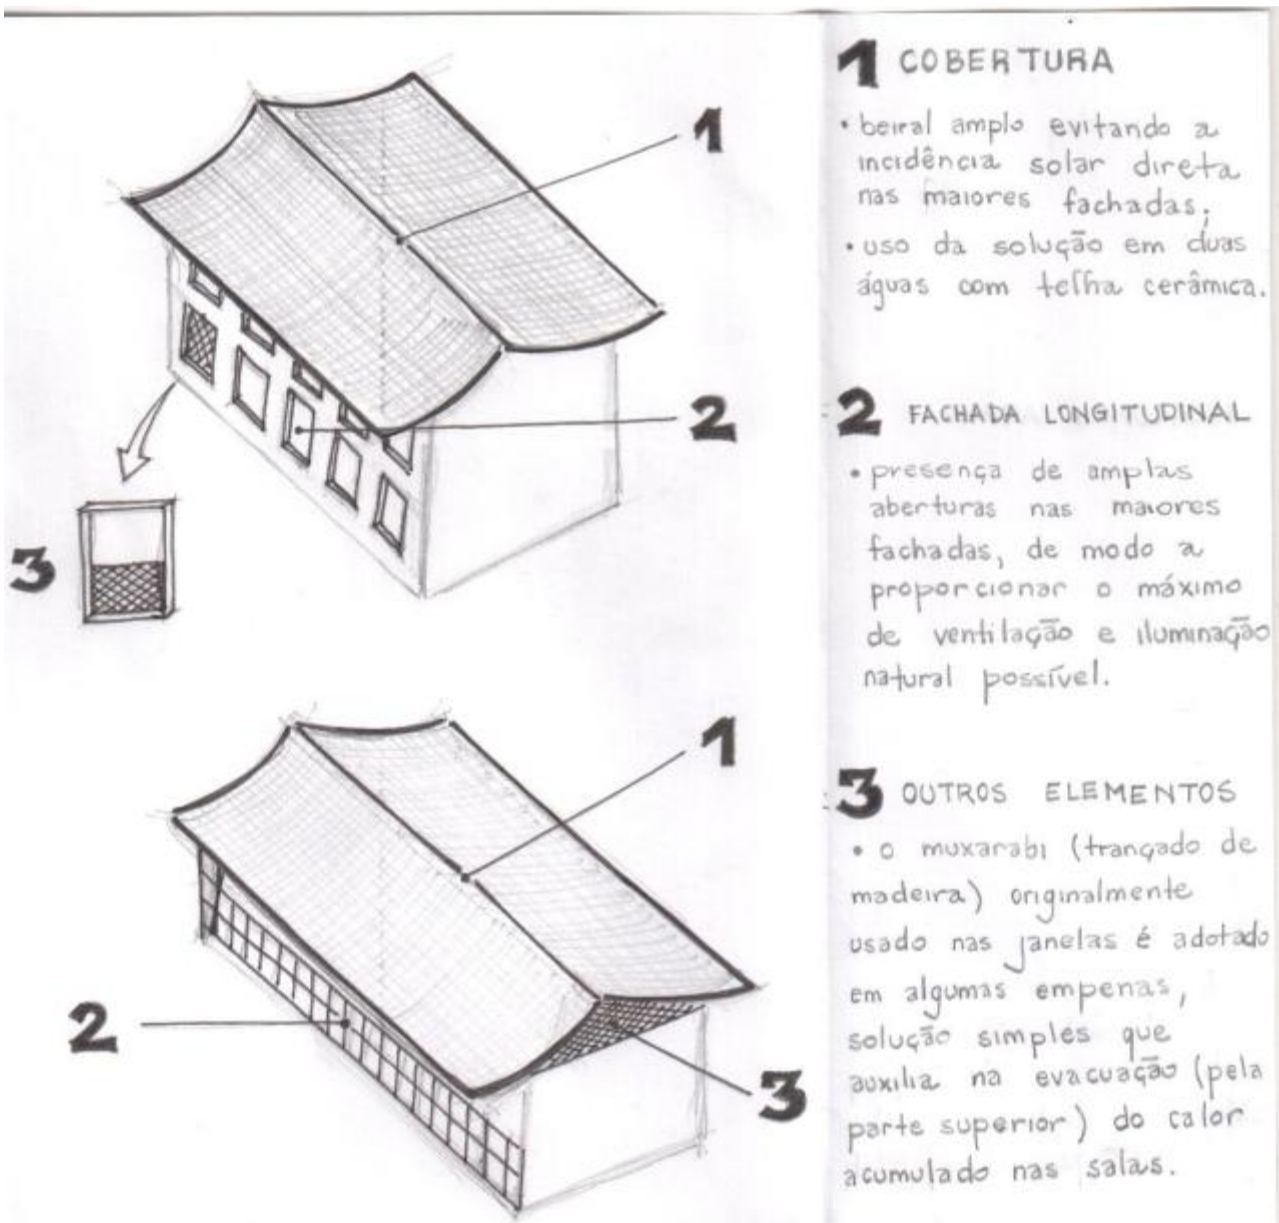 1 COBERTURA
• beiral amplo evitando a
incidência solar direta
nas maiores fachadas;
• uso da solução em duas
águas com telha cerâmica.
2 FACHADA LONGITUDINAL
• presença de amplas
aberturas nas maiores
fachadas, de modo a
proporcionar o máximo
de ventilação e iluminação
natural possível.
3 OUTROS ELEMENTOS
• o muxarabi (trançado de
madeira) originalmente
usado nas janelas é adotado
em algumas empenas,
solução simples que
auxilia na evacuação (pela
parte superior) do calor
acumulado nas salas.
1
2
3
1
2
3